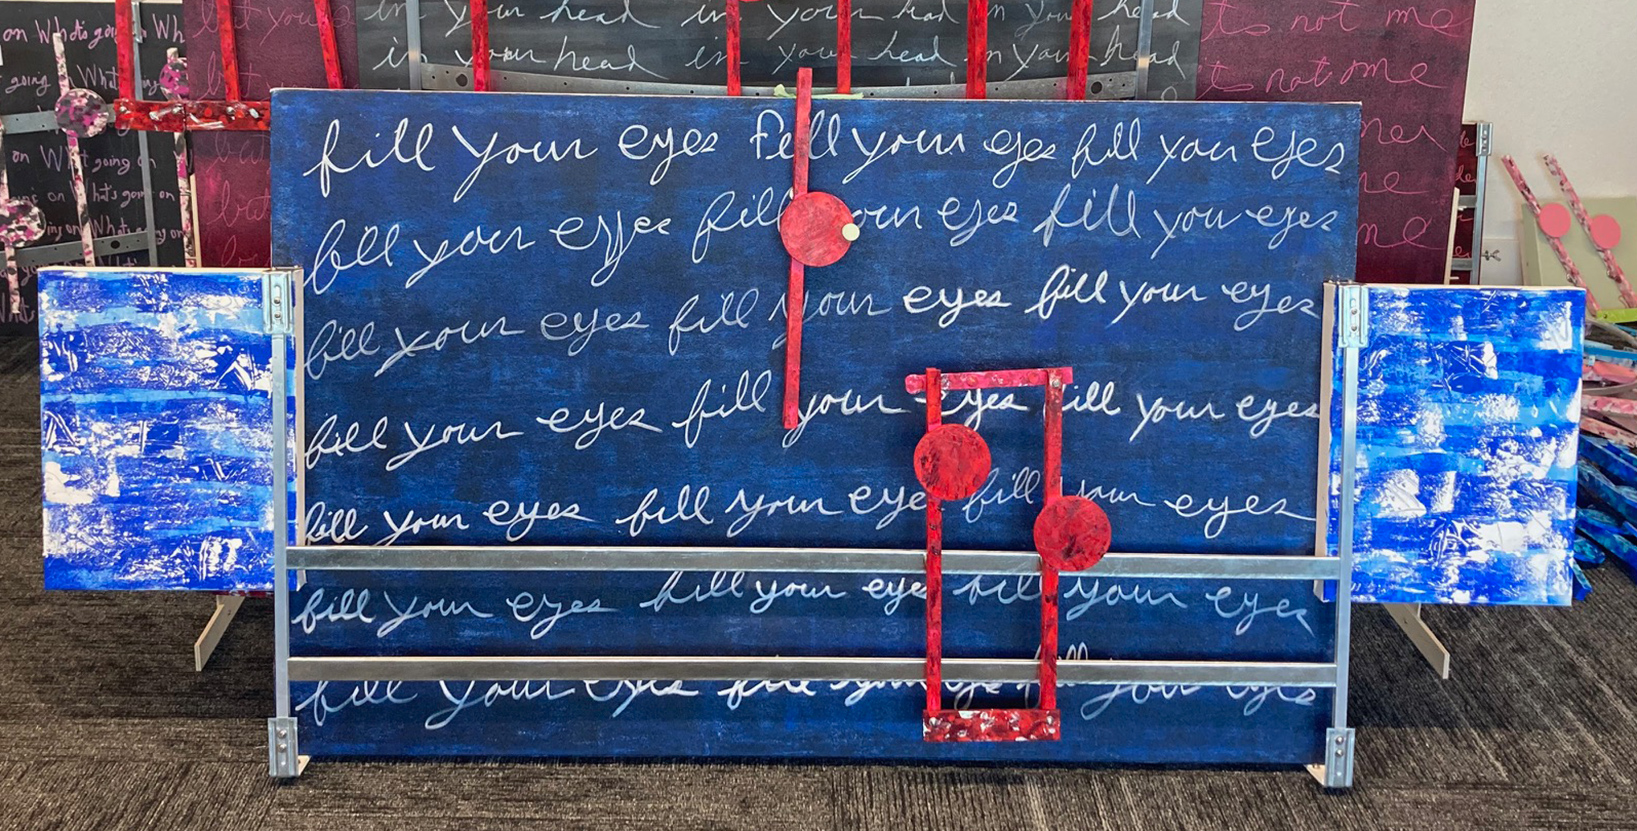 on What's going on Wh
but your
in your head in your head in your head
in your head in your head in your head
ts not me
t not me
going What's going
on What going on
on What's going on
going on What's on
What
but
but
me
me
me
fill your eyes fill your eyes fill your eyes
fill your eyes fill your eyes fill your eyes
fill your eyes fill your eyes fill your eyes
fill your eyes fill your eyes fill your eyes
fill your eyes fill your eye fill your eyes
fill your eyes fill your eye fill your eyes
fill your eyes fill your eye fill your eyes